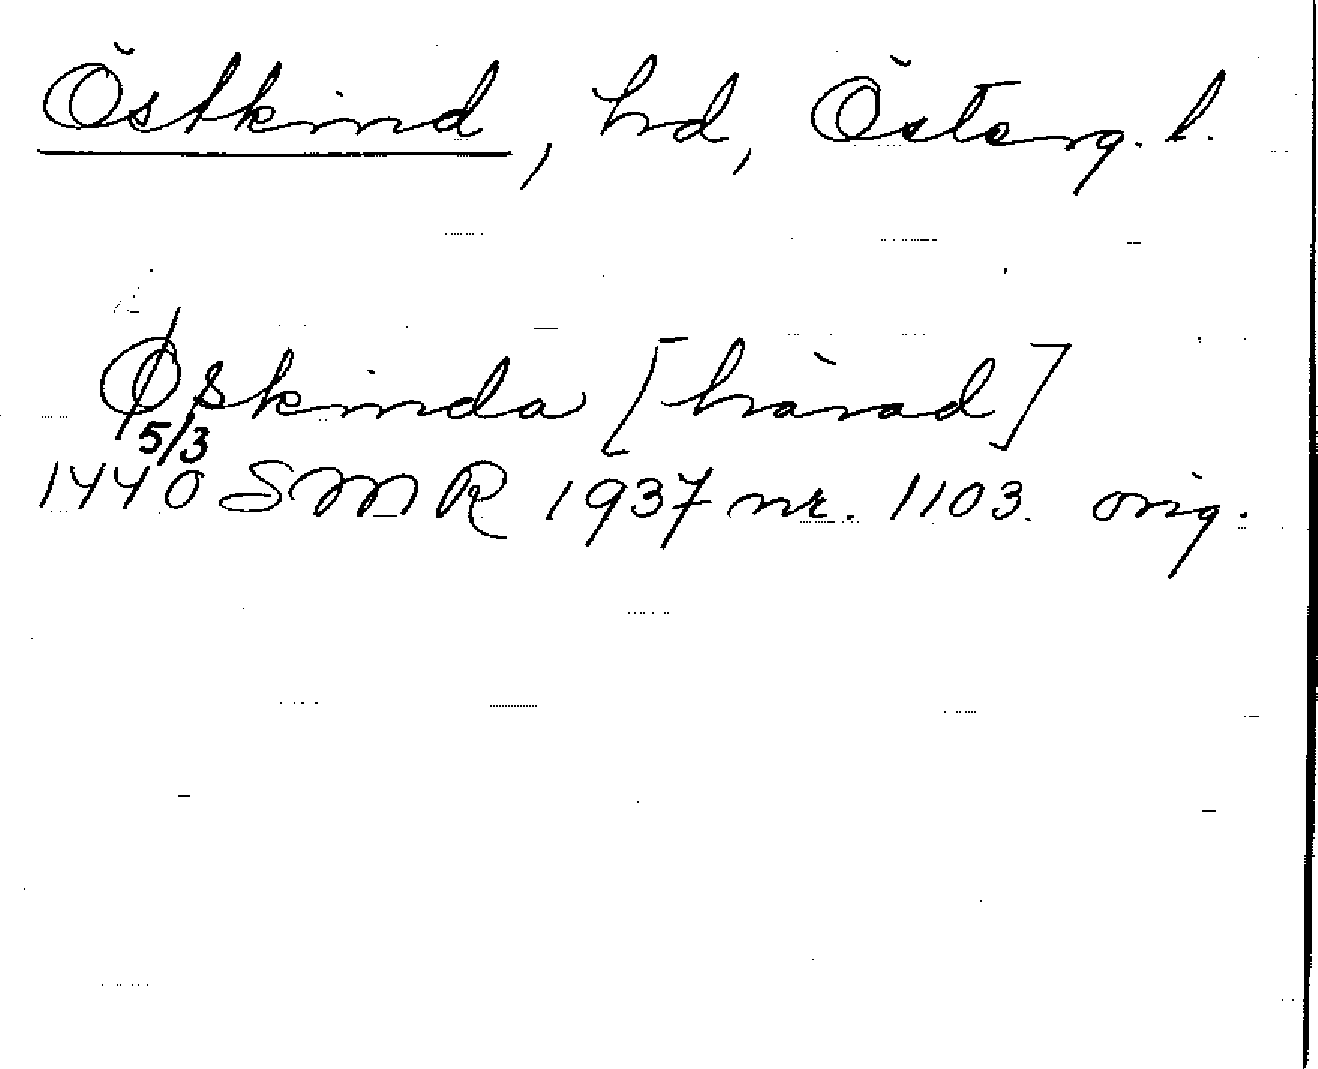 Östkind, hd, Österg. l.
Øskinda [härad]
5/3
1440 SMR 1937 nr. 1103. orig.